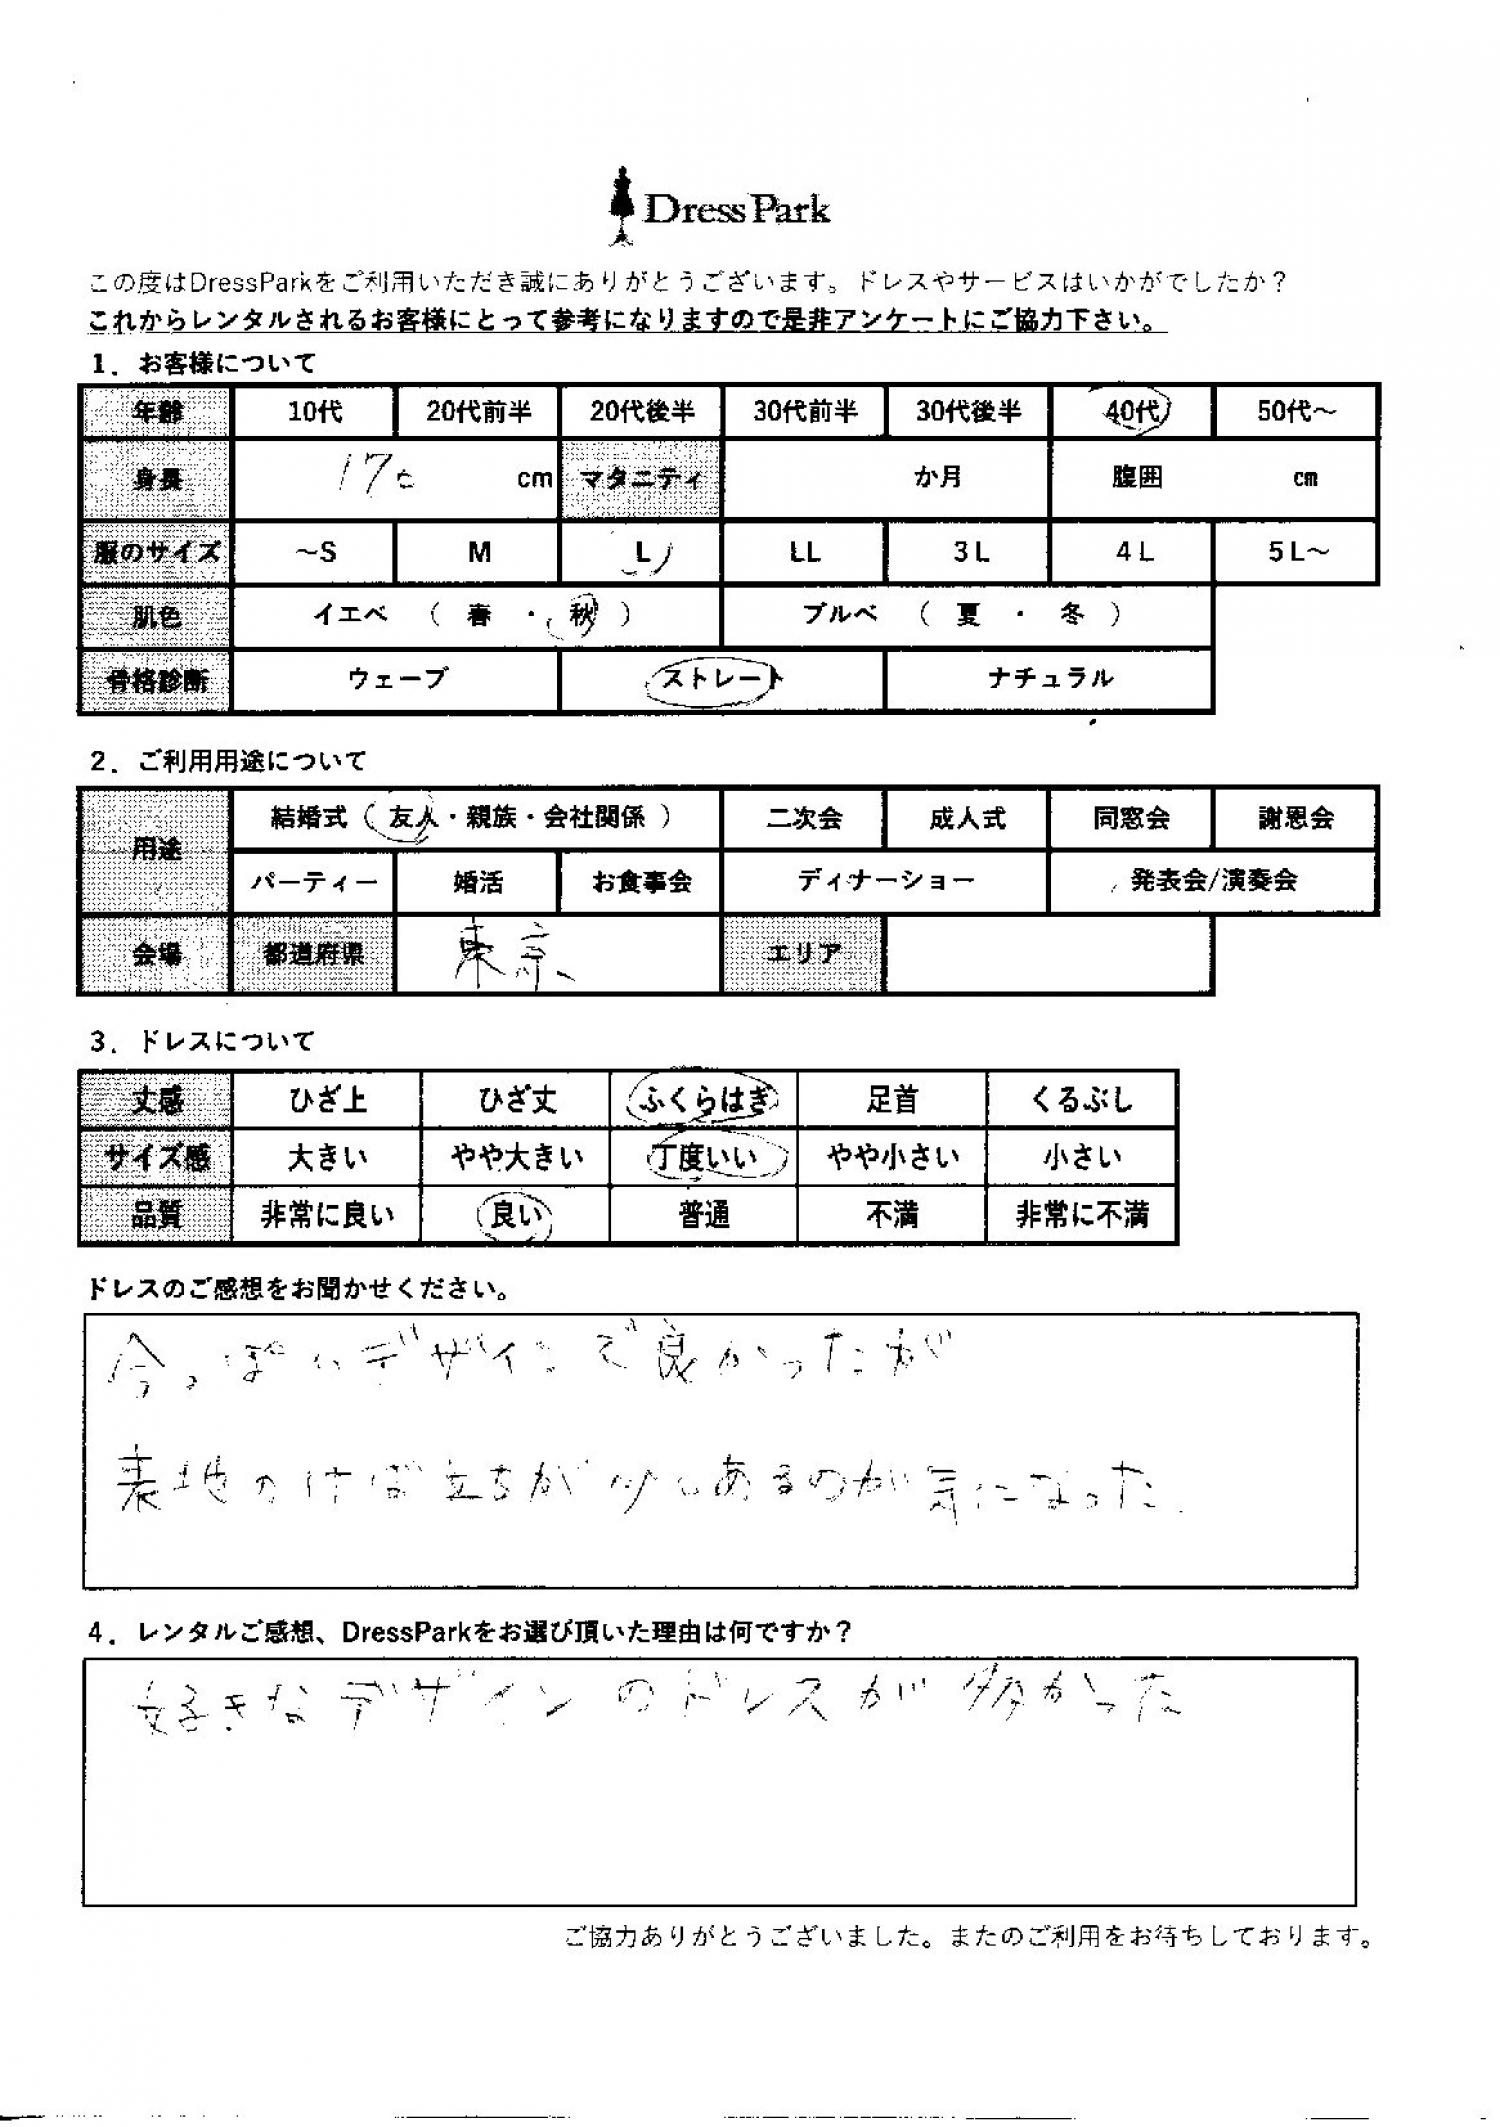 Dress Park
この度はDressParkをご利用いただき誠にありがとうございます。ドレスやサービスはいかがでしたか？
これからレンタルされるお客様にとって参考になりますので是非アンケートにご協力下さい。
1．お客様について
年齢 10代 20代前半 20代後半 30代前半 30代後半 40代 50代～
身長 170 cm マタニティ か月 腹囲 cm
服のサイズ ～S M L LL 3L 4L 5L～
肌色 イエベ （ 春 ・ 秋 ） ブルベ （ 夏 ・ 冬 ）
骨格診断 ウェーブ ストレート ナチュラル
2．ご利用用途について
用途 結婚式（ 友人・親族・会社関係 ） 二次会 成人式 同窓会 謝恩会
パーティー 婚活 お食事会 ディナーショー 発表会/演奏会
会場 都道府県 東京 エリア
3．ドレスについて
丈感 ひざ上 ひざ丈 ふくらはぎ 足首 くるぶし
サイズ感 大きい やや大きい 丁度いい やや小さい 小さい
品質 非常に良い 良い 普通 不満 非常に不満
ドレスのご感想をお聞かせください。
今っぽいデザインで良かったが
表地のけば立ちが少しあるのが気になった.
4．レンタルご感想、DressParkをお選び頂いた理由は何ですか？
好きなデザインのドレスが多かった
ご協力ありがとうございました。またのご利用をお待ちしております。